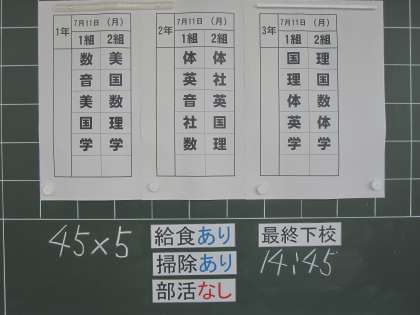 1年 7月11日 (月)
1組 2組
数 美
音 国
美 数
国 理
学 学
2年 7月11日 (月)
1組 2組
体 体
英 社
音 英
社 国
数 理
3年 7月11日 (月)
1組 2組
国 理
理 国
体 数
英 体
学 学
45×5
給食あり
掃除あり
部活なし
最終下校
14:45